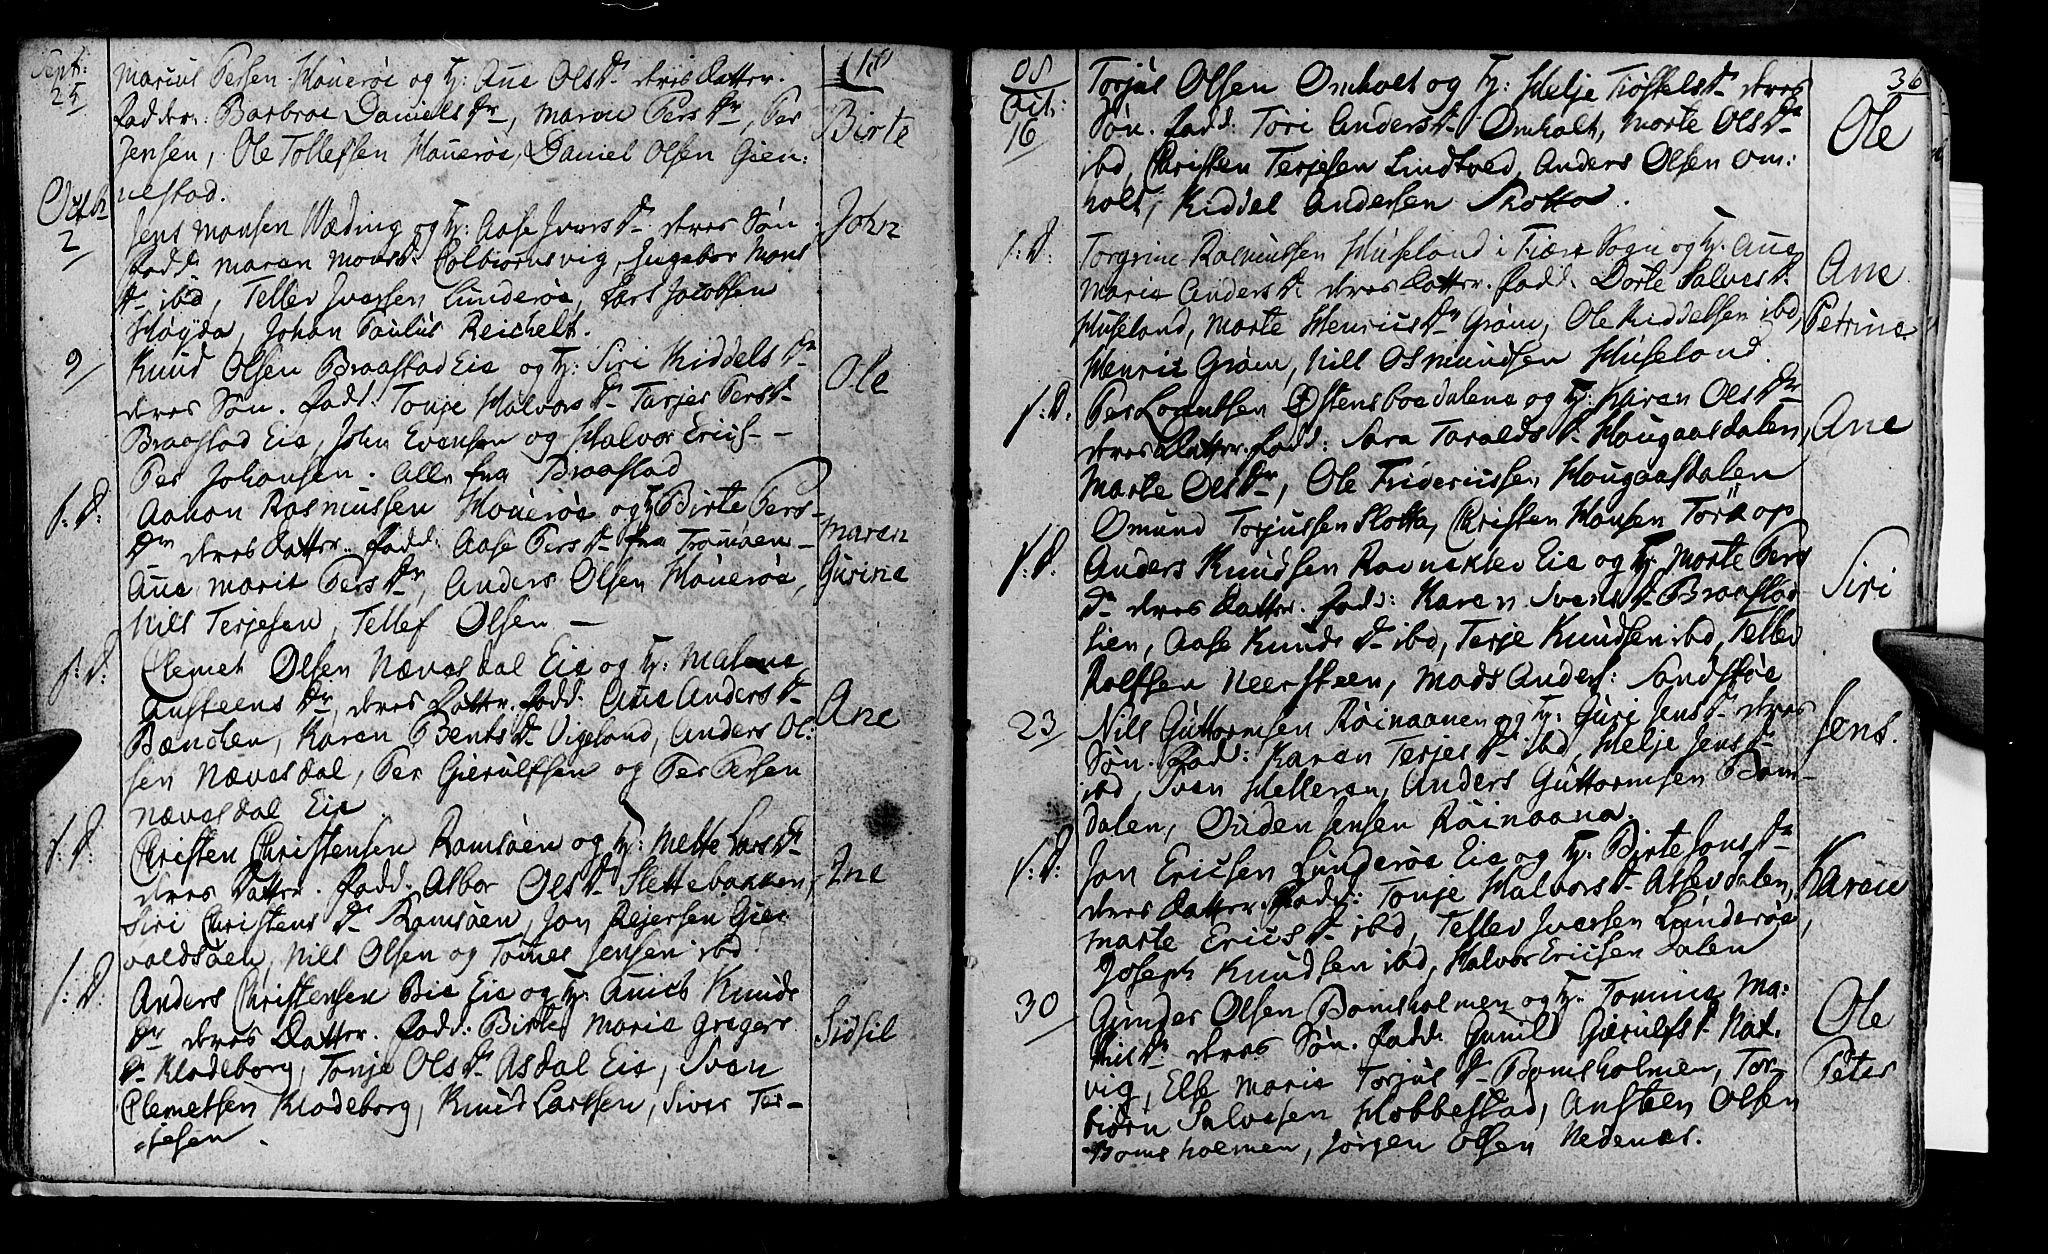 Sept: 25
Marius Persen Houerøe og H: Ane Olsdr deres Datter.
Fadder: Barbroe Danielsdr, Maren Persdr, Per
Jensen, Ole Tollefsen Houerøe, Daniel Olsen Gien-
nestad.
Birte
Octbr 2
Jens Monsen Væding og H: Aase Iversdr deres Søn
Fadd: Maren Monsdr Colbiørnsvig, Ingebor Mons
dr ibd, Tellev Iversen Lunderøe, Lars Jacobsen
Høgda, Johan Paulus Reichelt.
John
9
Knud Olsen Braastad Eie og H: Siri Kiddelsdr
deres Søn. Fadd: Tonje Halvorsdr Tarjer Persdr
Braastad Eie, John Evensen og Halvor Erics-
Per Johansen. Alle fra Braastad
Ole
S: D:
Aanon Rasmussen Houerøe og H: Birte Pers-
dr deres Datter. Fadd: Aase Persdr fra Tromøen
Ane Marie Persdr, Anders Olsen Houerøe,
Nils Terjesen, Tellef Olsen
Maren
Gurine
S: D:
Clemet Olsen Nævesdal Eie og H: Malene
Austeensdr, deres Datter. Fadd: Ane Andersdr
Bænchen, Karen Bentsdr Vigeland, Anders Ol:
sen Nævesdal, Per Gierulfsen og Per Persen
Nævesdal Eie
Ane
S: D:
Christen Christensen Ramsøen og H: Mette Larsdr
deres Datter. Fadd: Albor Olsdr Slettebakken,
Siri Christensdr Ramsøen, Jon Rejersen Gier
valdsøen, Nils Olsen og Tomes Jensen ibd
Ine
S: D:
Anders Christensen Bie Eie og H: Anich Knuds
dr deres Datter. Fadd: Birte Marie Gregers
dr Klodeborg, Tonje Olsdr Asdal Eie, Sven
Clemetsen Klodeborg, Knud Larssen, Siver Ter-
jesen.
Sidsil
36
08
Oct: 16
Torjus Olsen Omholt og H: Helje Tiøstelsdr deres
Søn. Fadd: Tori Andersdr Omholt, Morte Olsdr
ibd, Christen Terjesen Lindtved, Anders Olsen Om:
holt, Kiddel Andersen Slotta.
Ole
S: D:
Torgrim Rasmussen Huseland i Fiære Sogn og H: Ane
Marie Andersdr deres Datter. Fadd: Dorte Salvesdr
Huseland, Morte Henriusdr Grøm, Ole Kiddelsen ibd,
Henrie Grøm, Nils Osmundsen Huseland.
Ane
Petrine
S: D:
Per Lorentsen Østensboedalene og H: Karen Olsdr
deres Datter. Fadd: Sara Taraldsdr Hougaasdalen,
Marte Olsdr, Ole Fridericssen Hougaasdalen
Omund Torjussen Slotta, Christen Hansen Torskop
Ane
S: D:
Anders Knudsen Ravneklev Eie og H: Morte Pers
dr deres Datter. Fadd: Karen Svensdr Braastad-
Eien, Aase Knudsdr ibd, Terje Knudsen ibd, Tellev
Rolfsen Neersteen, Mads Anders: Sandstøe
Siri
23
Nils Guttormsen Røinaanen og H: Guri Jensdr deres
Søn. Fadd: Karen Terjesdr ibd, Helje Jensdr
ibd, Sven Helleren, Anders Guttormsen Bom-
dalen, Ouden Jensen Røinaana.
Jens.
S: D:
Jon Ericsen Lunderøe Eie og H: Birte Jonsdr
deres Datter. Fadd: Tonje Halvorsdr Assevdalen,
Marte Ericsdr ibd, Tellev Iversen Lunderøe,
Joseph Knudsen ibd, Halvor Ericsen Dalen
Karen
30
Gunder Olsen Bomsholmen og H: Tomine Ma:
thisdr deres Søn. Fadd: Gunild Gierulfsdr Nat-
vig, Else Marie Torjusdr Bomsholmen, Tor-
biørn Salvesen Hobbestad, Austen Olsen
Bomsholmen, Jørgen Olsen Nedenæs.
Ole
Peter